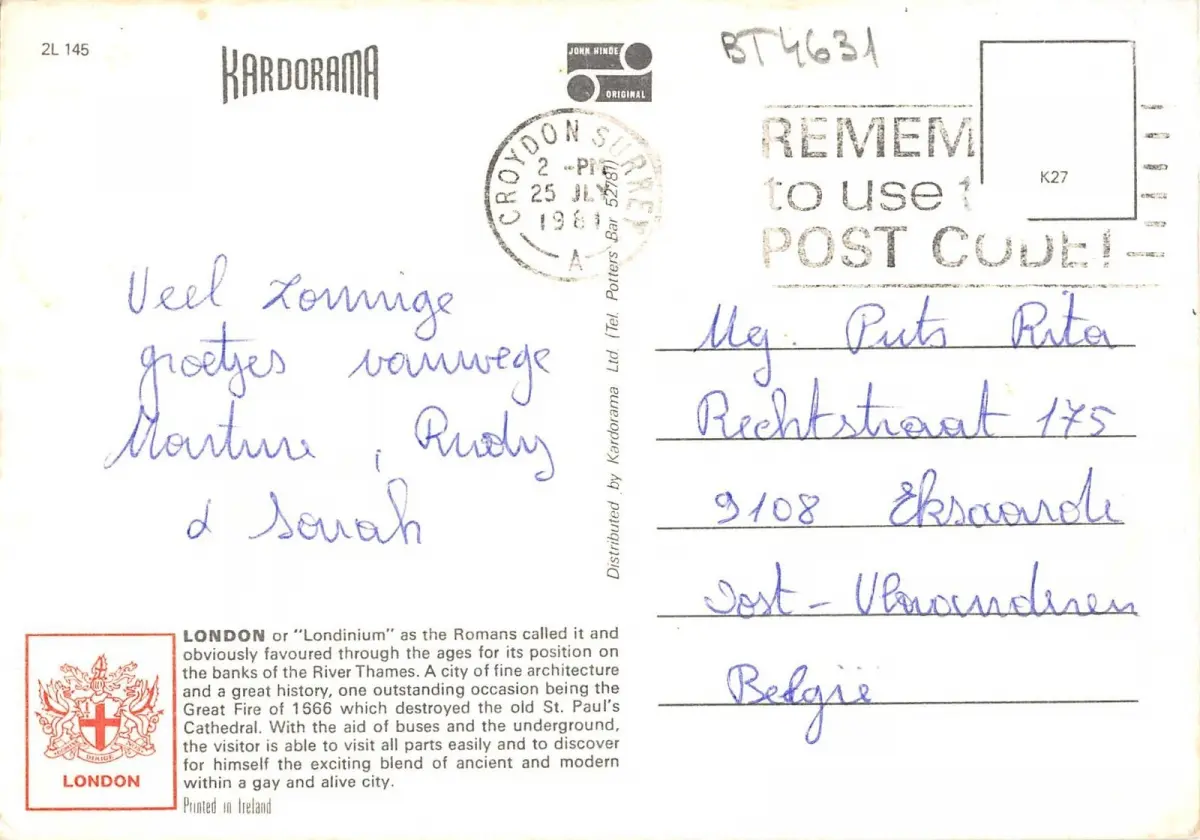 2L 145
KARDORAMA
JOHN HINDE
ORIGINAL
BT4631
CROYDON SURREY
2 -PM
25 JLY
1981
A
REMEM
to use t
POST CODE!
K27
Veel zonnige
groetjes vanwege
Martine, Rudy
& Sarah
Distributed by Kardorama Ltd. (Tel. Potters Bar 52781)
Mej. Puts Rita
Rechtstraat 175
9108 Eksaarde
Oost-Vlaanderen
België
LONDON or "Londinium" as the Romans called it and
obviously favoured through the ages for its position on
the banks of the River Thames. A city of fine architecture
and a great history, one outstanding occasion being the
Great Fire of 1666 which destroyed the old St. Paul's
Cathedral. With the aid of buses and the underground,
the visitor is able to visit all parts easily and to discover
for himself the exciting blend of ancient and modern
within a gay and alive city.
DIRIGE
LONDON
Printed in Ireland